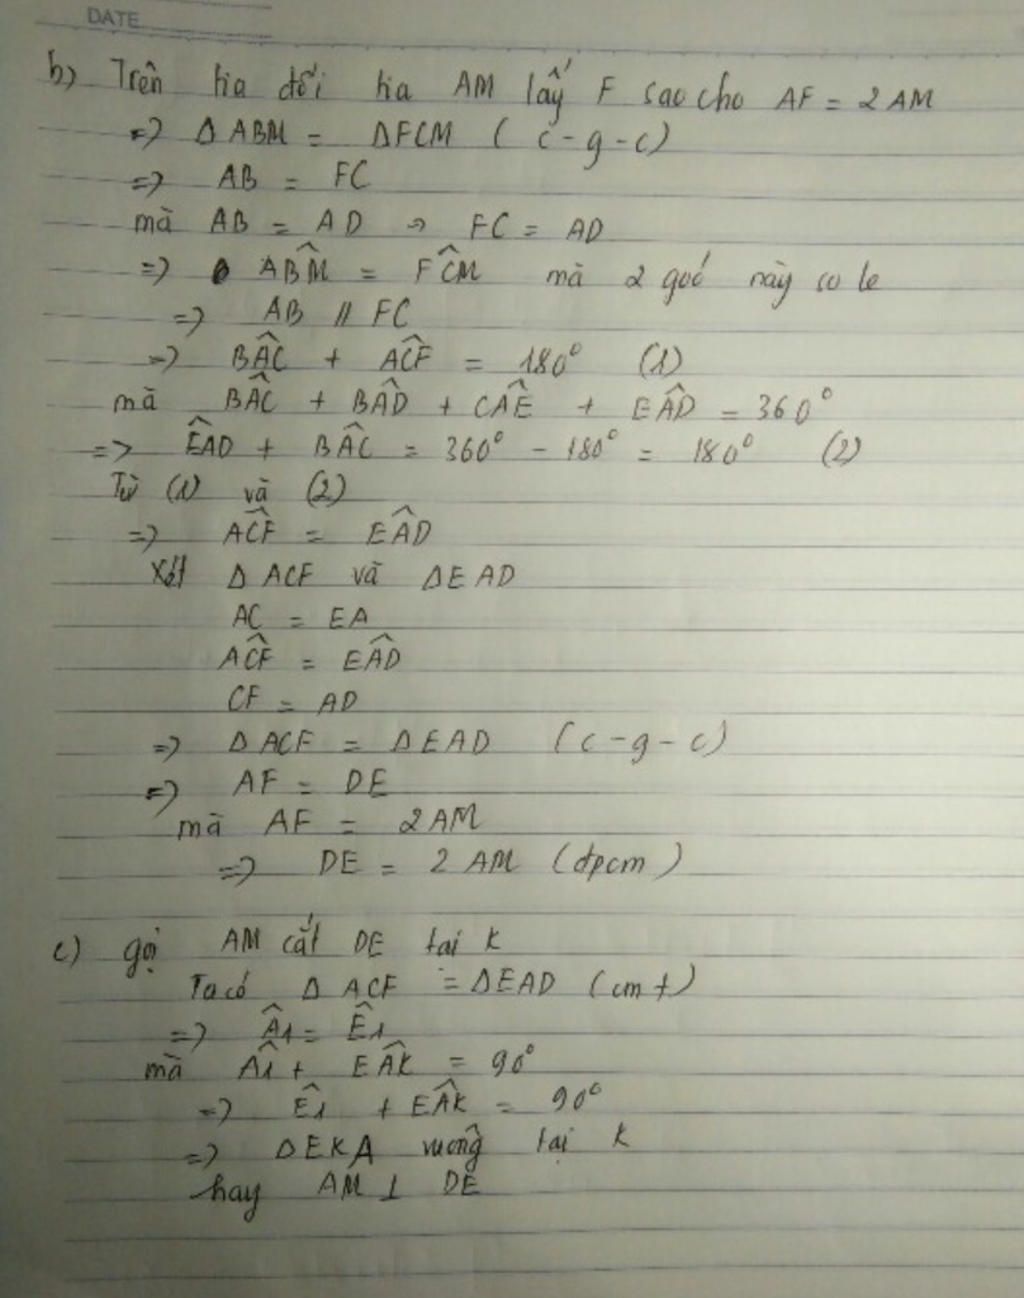 DATE
b) Trên tia đối tia AM lấy F sao cho AF = 2 AM
=> Δ ABM = ΔFCM ( c-g-c)
=> AB = FC
mà AB = AD => FC = AD
=> AB̂M = FĈM mà 2 góc này so le
=> AB // FC
=> BÂC + AĈF = 180° (1)
mã BÂC + BÂD + CÂE + EÂD = 360°
=> ÊAD + BÂC = 360° - 180° = 180° (2)
Từ (1) và (2)
=> AĈF = EÂD
Xét Δ ACF và ΔEAD
AC = EA
AĈF = EÂD
CF = AD
=> Δ ACF = ΔEAD (c-g-c)
=> AF = DE
mà AF = 2AM
=> DE = 2 AM (đpcm)
c) gọi AM cắt DE tại K
Ta có Δ ACF = ΔEAD (cmt)
=> Â1 = Ê1
mà Â1 + EÂK = 90°
=> Ê1 + EÂK = 90°
=> ΔEKA vuông tại K
hay AM ⊥ DE